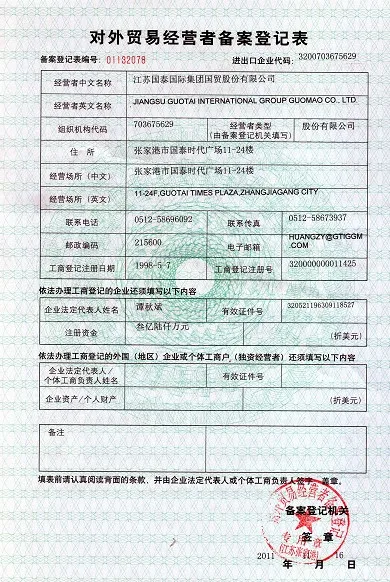 对外贸易经营者备案登记表
备案登记表编号: 01132078 进出口企业代码: 3200703675629
经营者中文名称 江苏国泰国际集团国贸股份有限公司
经营者英文名称 JIANGSU GUOTAI INTERNATIONAL GROUP GUOMAO CO., LTD.
组织机构代码 703675629 经营者类型 (由备案登记机关填写) 股份有限公司
住 所 张家港市国泰时代广场11-24楼
经营场所 (中文) 张家港市国泰时代广场11-24楼
经营场所 (英文) 11-24F,GUOTAI TIMES PLAZA,ZHANGJIAGANG CITY
联系电话 0512-58696092 联系传真 0512-58673937
邮政编码 215600 电子邮箱 HUANGZY@GTIGGM.COM
工商登记注册日期 1998-5-7 工商登记注册号 320000000011425
依法办理工商登记的企业还须填写以下内容
企业法定代表人姓名 谭秋斌 有效证件号 320521196309118527
注册资金 叁亿陆仟万元 (折美元)
依法办理工商登记的外国 (地区) 企业或个体工商户 (独资经营者) 还须填写以下内容
企业法定代表人/ 个体工商负责人姓名 有效证件号
企业资产/个人财产 (折美元)
备注
填表前请认真阅读背面的条款, 并由企业法定代表人或个体工商负责人签字、盖章。
备案登记机关
签 章
2011 年 11 月 16 日
对外贸易经营者备案登记
专用章
(江苏张家港)